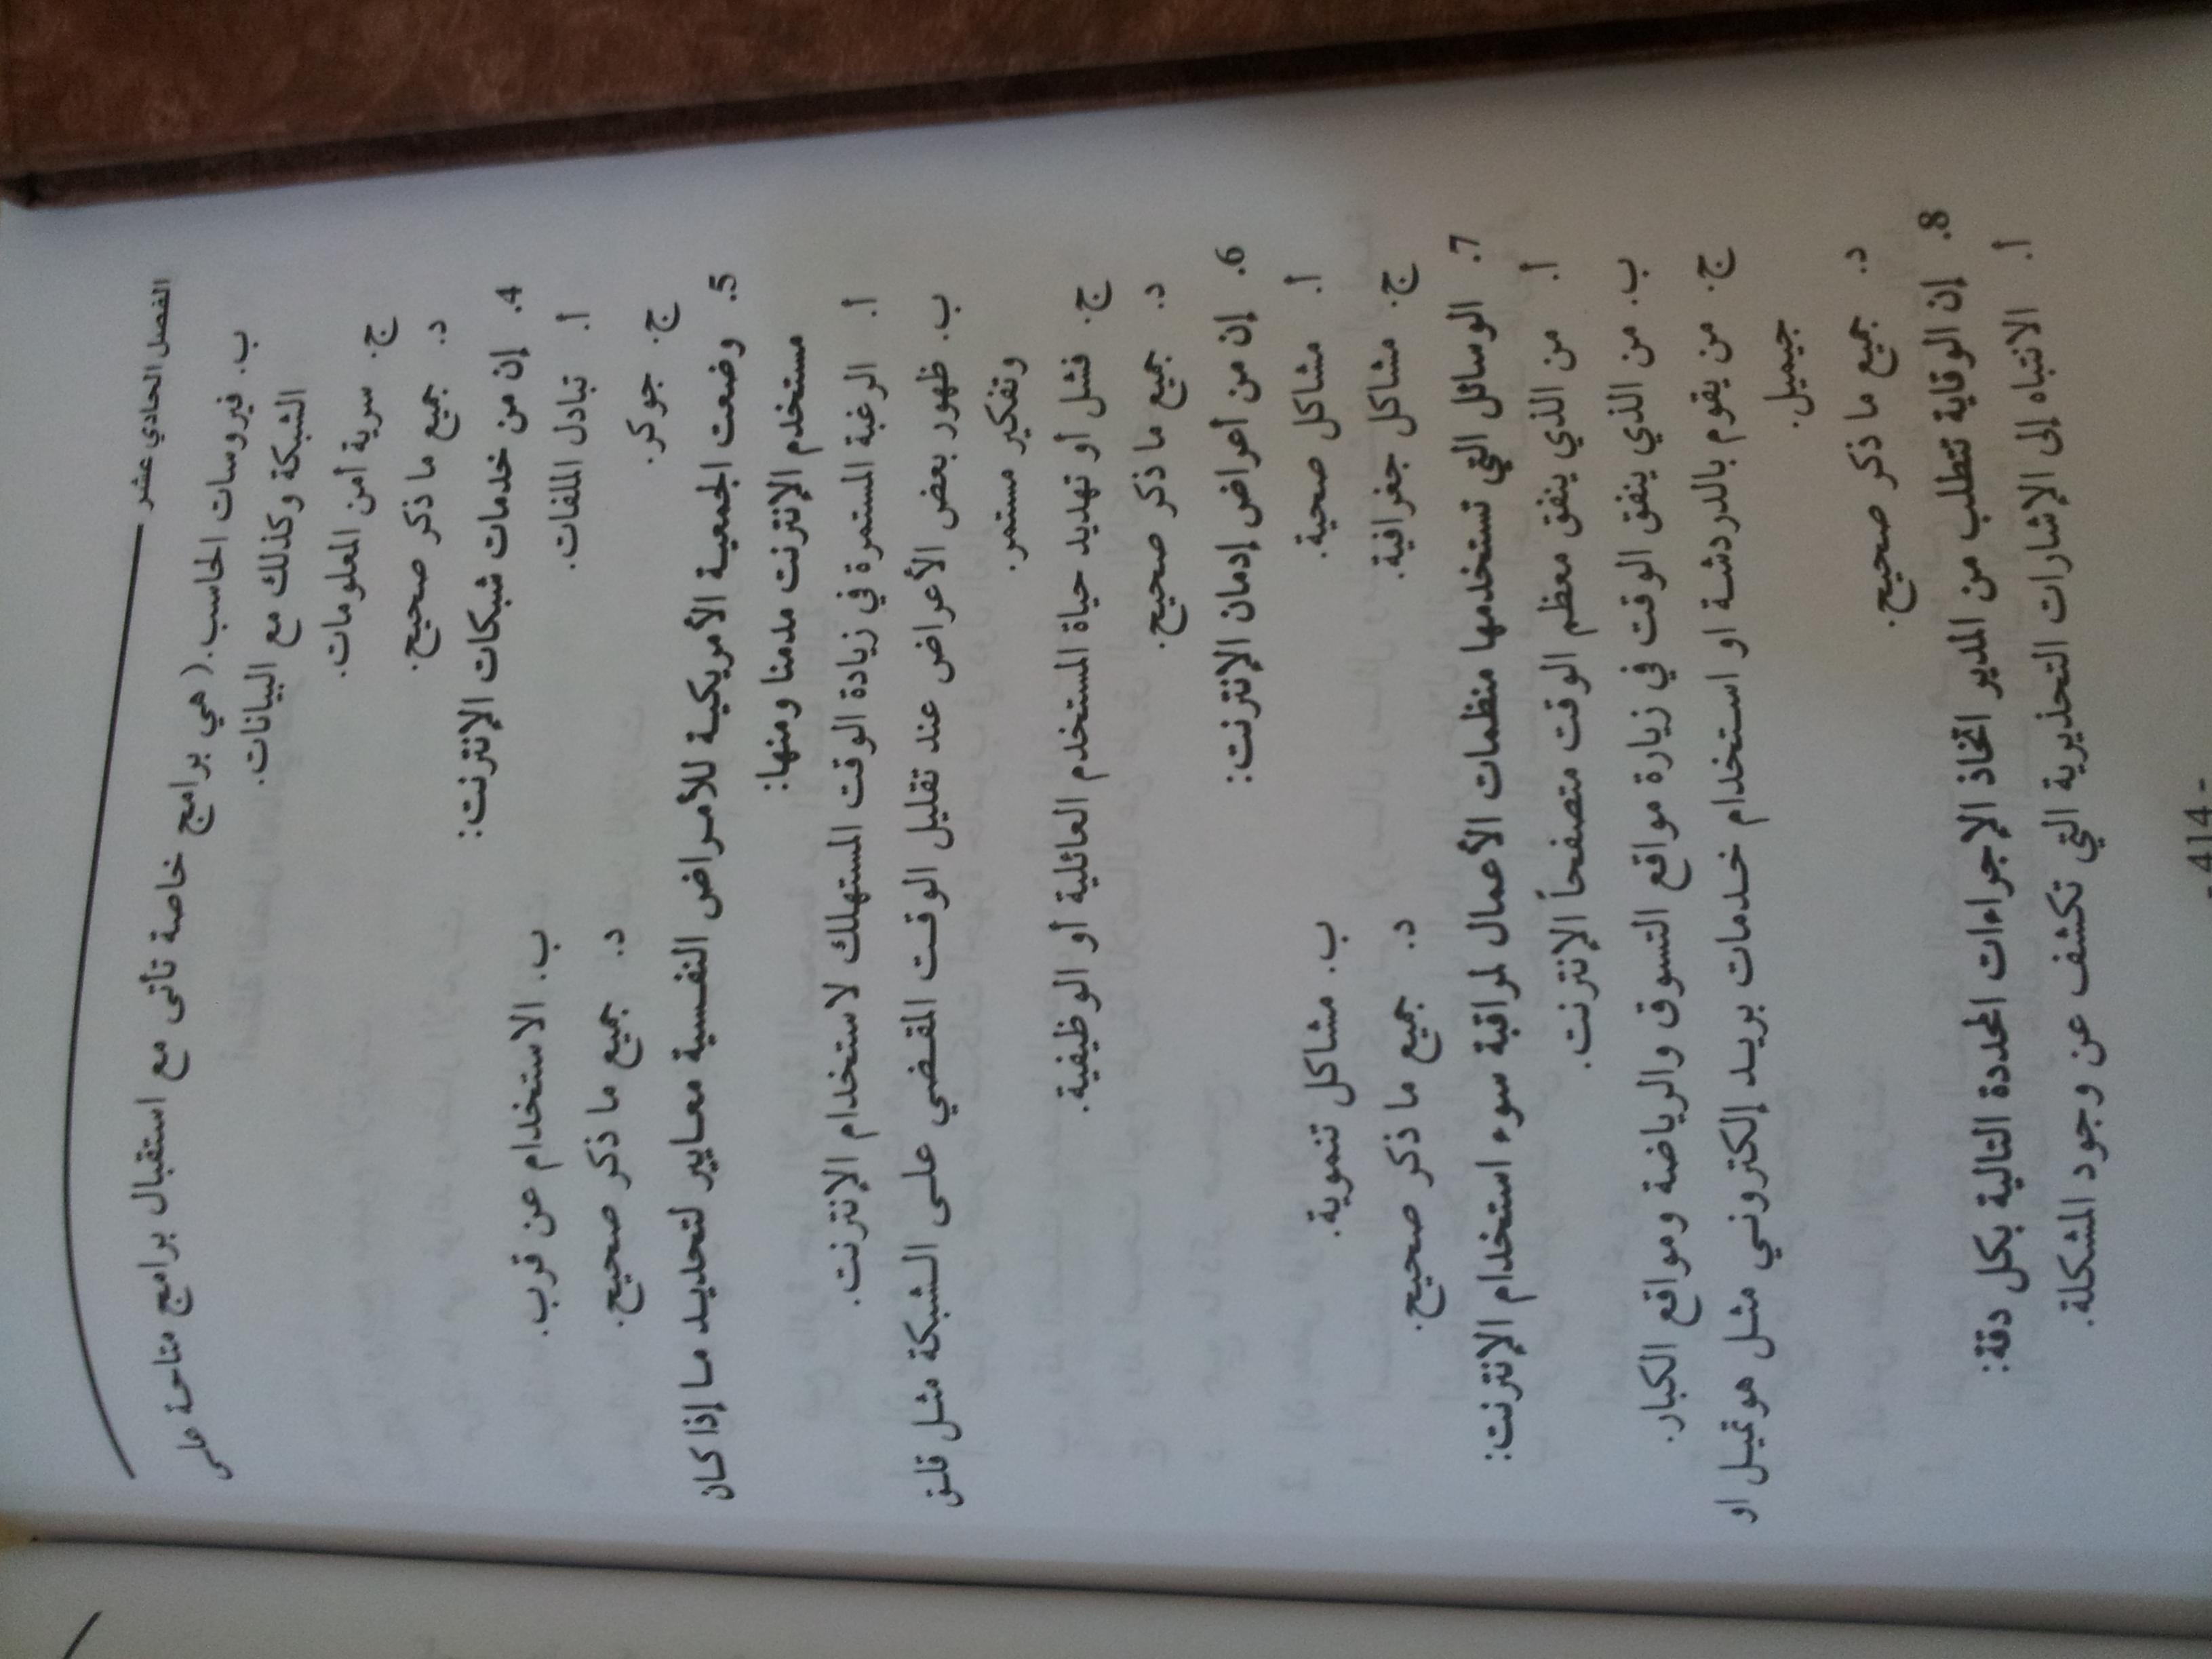 الفصل الحادي عشر
ب. فيروسات الحاسب. (هي برامج خاصة تأتى مع استقبال برامج متاحة على
الشبكة وكذلك مع البيانات.
ج. سرية أمن المعلومات.
د. جميع ما ذكر صحيح.
4. إن من خدمات شبكات الإنترنت:
أ. تبادل الملفات. ب. الاستخدام عن قرب.
ج. جوكر. د. جميع ما ذكر صحيح.
5. وضعت الجمعية الأمريكية للأمراض النفسية معايير لتحديد ما إذا كان
مستخدم الإنترنت مدمنا ومنها:
أ. الرغبة المستمرة في زيادة الوقت المستهلك لاستخدام الإنترنت.
ب. ظهور بعض الأعراض عند تقليل الوقت المقضي على الشبكة مثل قلق
وتفكير مستمر.
ج. فشل أو تهديد حياة المستخدم العائلية أو الوظيفية.
د. جميع ما ذكر صحيح.
6. إن من أعراض إدمان الإنترنت:
أ. مشاكل صحية. ب. مشاكل تنموية.
ج. مشاكل جغرافية. د. جميع ما ذكر صحيح.
7. الوسائل التي تستخدمها منظمات الأعمال لمراقبة سوء استخدام الإنترنت:
أ. من الذي ينفق معظم الوقت متصفحاً الإنترنت.
ب. من الذي ينفق الوقت في زيارة مواقع التسوق والرياضة ومواقع الكبار.
ج. من يقوم بالدردشة او استخدام خدمات بريد إلكتروني مثل هوتميل او
جيميل.
د. جميع ما ذكر صحيح.
8. إن الوقاية تتطلب من المدير اتخاذ الإجراءات المحددة التالية بكل دقة:
أ. الانتباه إلى الإشارات التحذيرية التي تكشف عن وجود المشكلة.
- 414 -